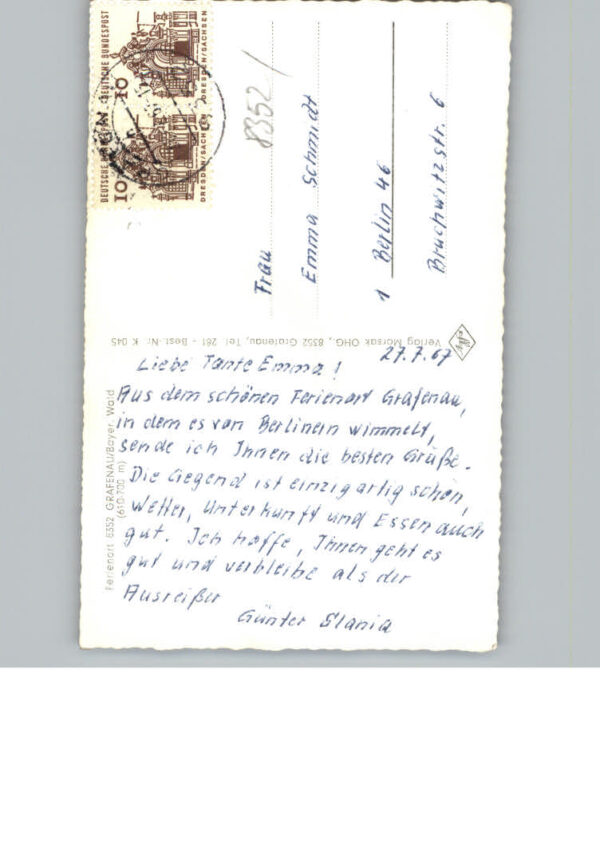 27.7.67
Liebe Tante Emma!
Aus dem schönen Ferienort Grafenau,
in dem es von Berlinern wimmelt,
sende ich Ihnen die besten Grüße.
Die Gegend ist einzigartig schön,
Wetter, Unterkunft und Essen auch
gut. Ich hoffe, Ihnen geht es
gut und verbleibe als der
Ausreißer
Günter Slania
Frau
Emma Schmidt
1 Berlin 46
Bruchwitzstr. 6
8352/
DEUTSCHE BUNDESPOST
10
DRESDEN/SACHSEN
DEUTSCHE
10
DRESDEN/SACHSEN
Verlag Morsak OHG., 8352 Grafenau, Tel. 261 - Best.-Nr. K 045
Ferienort 8352 GRAFENAU/Bayer. Wald
(610-700 m)